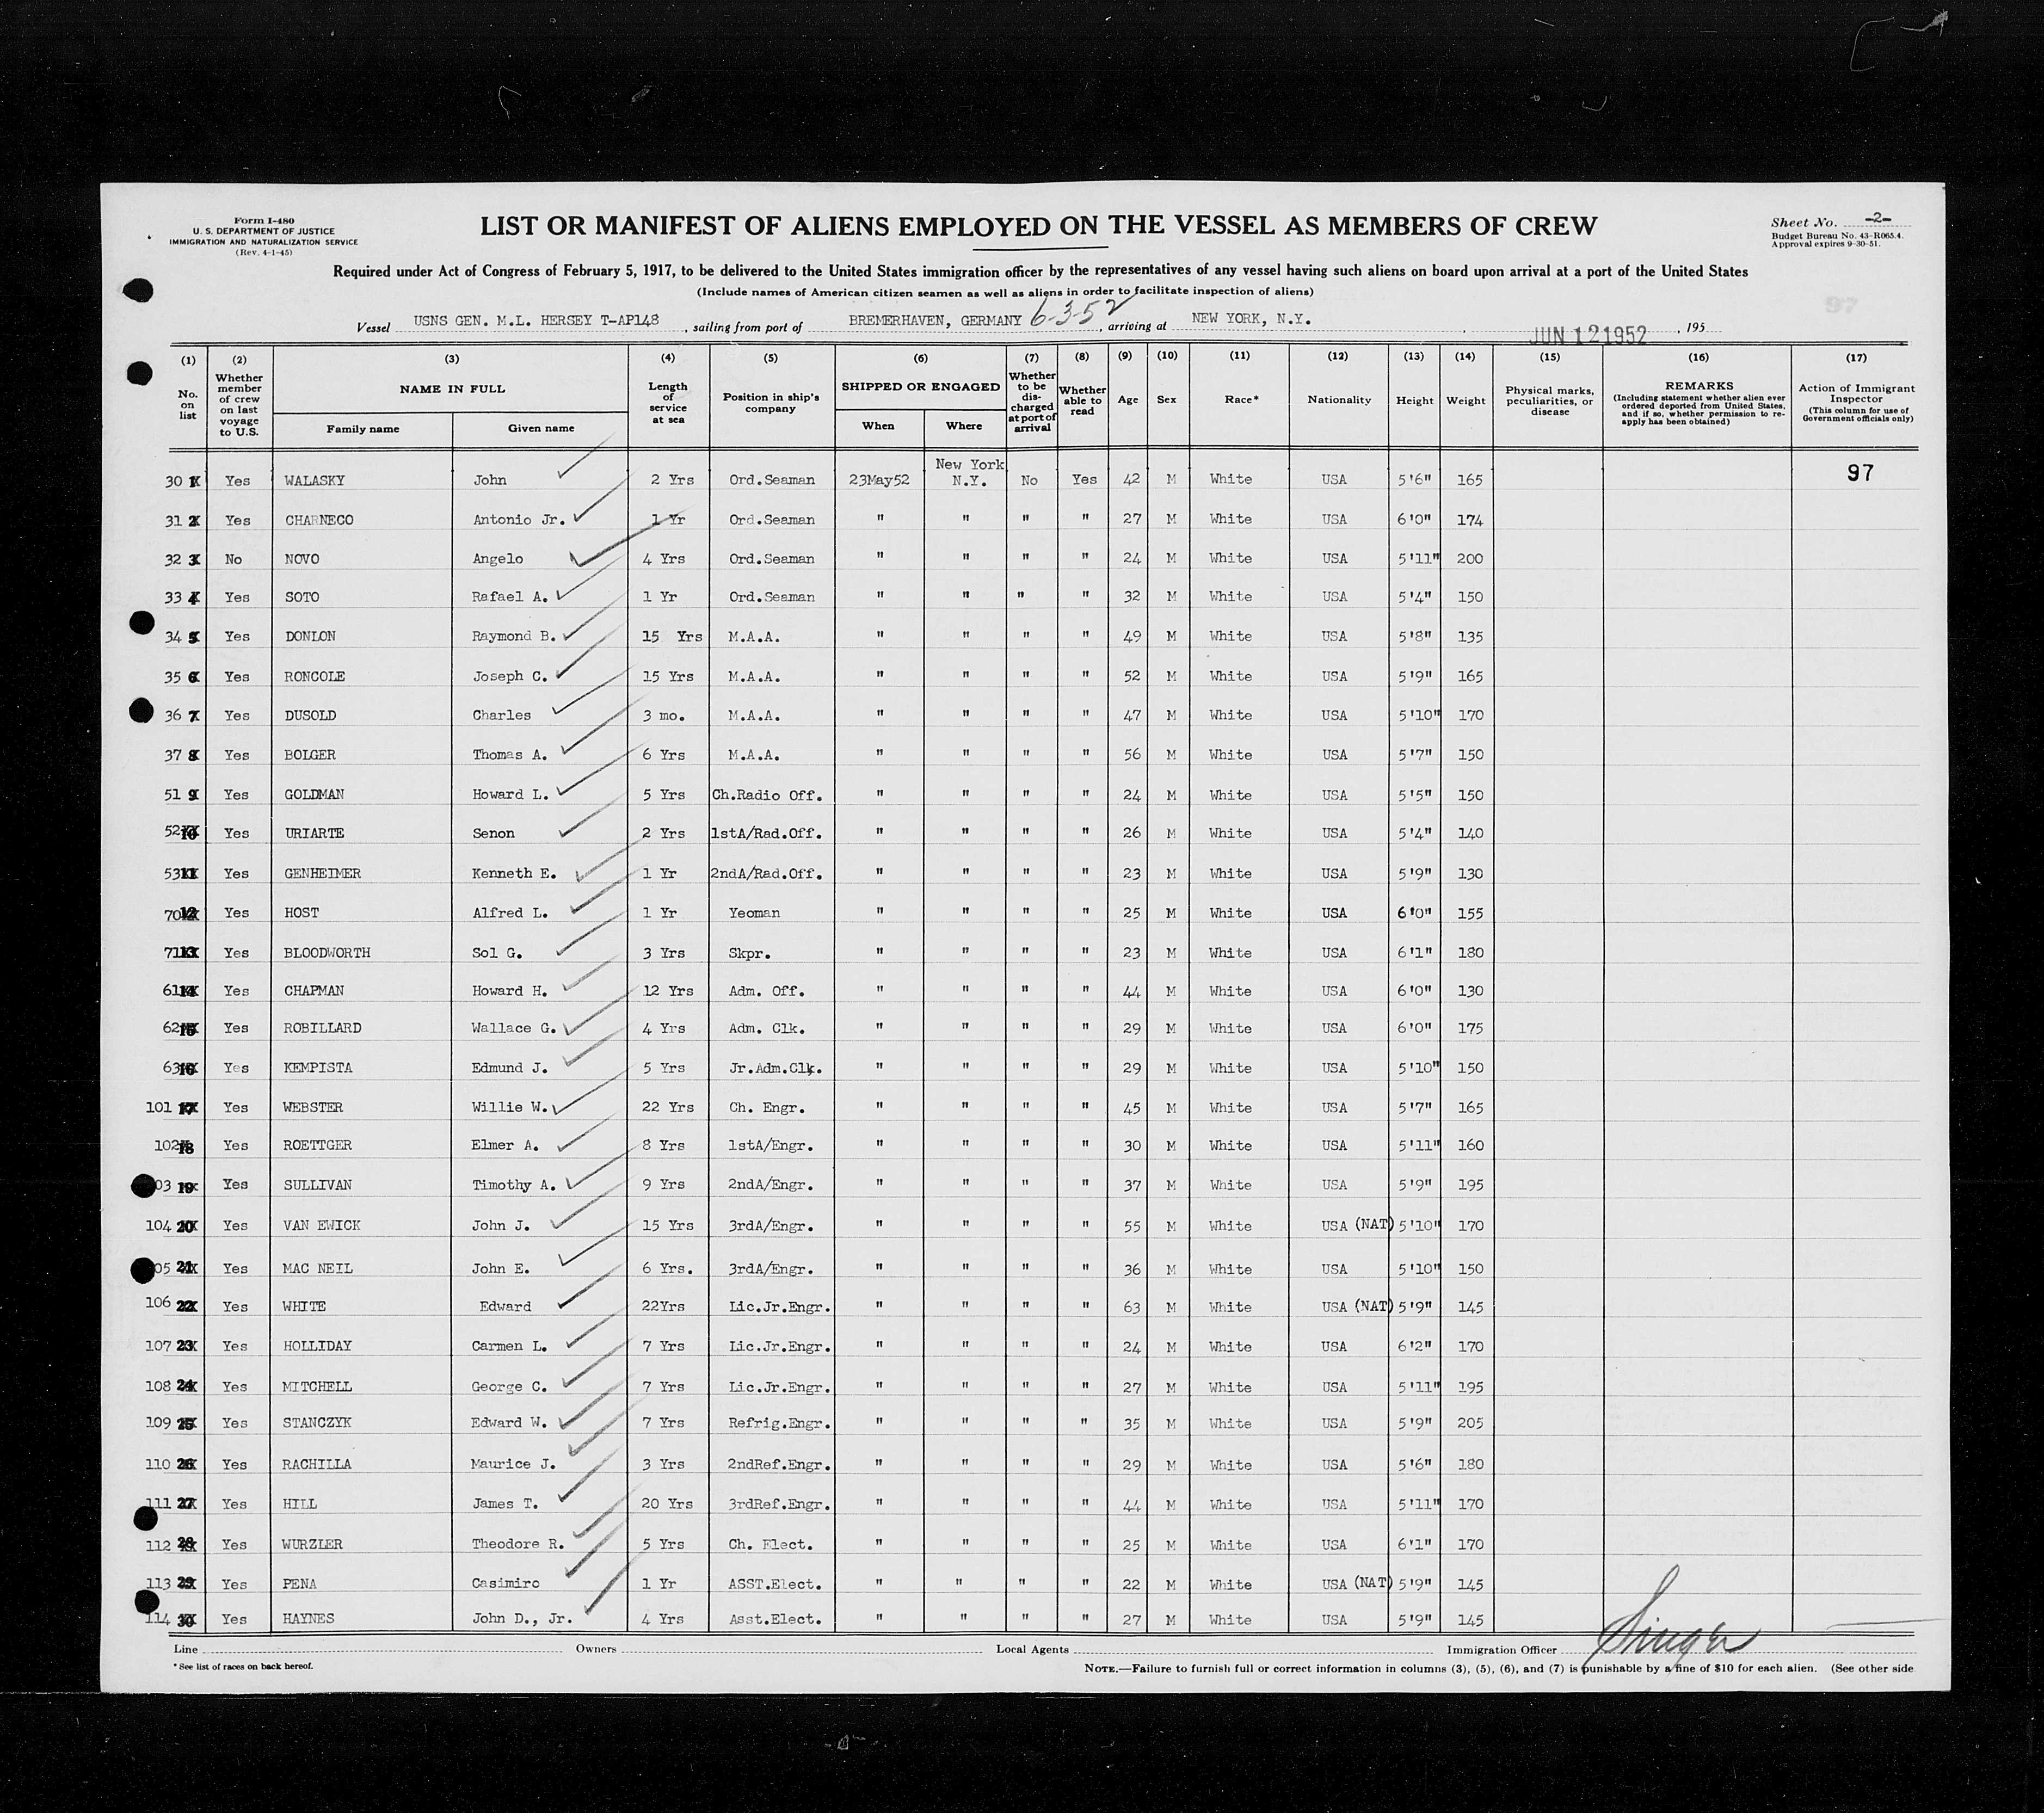 Form I-480
U. S. DEPARTMENT OF JUSTICE
IMMIGRATION AND NATURALIZATION SERVICE
(Rev. 4-1-45)
LIST OR MANIFEST OF ALIENS EMPLOYED ON THE VESSEL AS MEMBERS OF CREW
Sheet No. -2-
Budget Bureau No. 43-R065.4.
Approval expires 9-30-51.
Required under Act of Congress of February 5, 1917, to be delivered to the United States immigration officer by the representatives of any vessel having such aliens on board upon arrival at a port of the United States
(Include names of American citizen seamen as well as aliens in order to facilitate inspection of aliens)
97
Vessel USNS GEN. M.L. HERSEY T-AP148, sailing from port of BREMERHAVEN, GERMANY 6-3-52, arriving at NEW YORK, N.Y., JUN 12 1952, 195
(1) (2) (3) (4) (5) (6) (7) (8) (9) (10) (11) (12) (13) (14) (15) (16) (17)
No. on list
Whether member of crew on last voyage to U.S.
NAME IN FULL
Family name
Given name
Length of service at sea
Position in ship's company
SHIPPED OR ENGAGED
When
Where
Whether to be discharged at port of arrival
Whether able to read
Age
Sex
Race*
Nationality
Height
Weight
Physical marks, peculiarities, or disease
REMARKS
(Including statement whether alien ever ordered deported from United States, and if so, whether permission to reapply has been obtained)
Action of Immigrant Inspector
(This column for use of Government officials only)
30 1 Yes WALASKY John 2 Yrs Ord.Seaman 23May52 New York N.Y. No Yes 42 M White USA 5'6" 165 97
31 2 Yes CHARNECO Antonio Jr. 1 Yr Ord.Seaman " " " " 27 M White USA 6'0" 174
32 3 No NOVO Angelo 4 Yrs Ord.Seaman " " " " 24 M White USA 5'11" 200
33 4 Yes SOTO Rafael A. 1 Yr Ord.Seaman " " " " 32 M White USA 5'4" 150
34 5 Yes DONLON Raymond B. 15 Yrs M.A.A. " " " " 49 M White USA 5'8" 135
35 6 Yes RONCOLE Joseph C. 15 Yrs M.A.A. " " " " 52 M White USA 5'9" 165
36 7 Yes DUSOLD Charles 3 mo. M.A.A. " " " " 47 M White USA 5'10" 170
37 8 Yes BOLGER Thomas A. 6 Yrs M.A.A. " " " " 56 M White USA 5'7" 150
51 9 Yes GOLDMAN Howard L. 5 Yrs Ch.Radio Off. " " " " 24 M White USA 5'5" 150
52 10 Yes URIARTE Senon 2 Yrs 1stA/Rad.Off. " " " " 26 M White USA 5'4" 140
53 11 Yes GENHEIMER Kenneth E. 1 Yr 2ndA/Rad.Off. " " " " 23 M White USA 5'9" 130
70 12 Yes HOST Alfred L. 1 Yr Yeoman " " " " 25 M White USA 6'0" 155
71 13 Yes BLOODWORTH Sol G. 3 Yrs Skpr. " " " " 23 M White USA 6'1" 180
61 14 Yes CHAPMAN Howard H. 12 Yrs Adm. Off. " " " " 44 M White USA 6'0" 130
62 15 Yes ROBILLARD Wallace G. 4 Yrs Adm. Clk. " " " " 29 M White USA 6'0" 175
63 16 Yes KEMPISTA Edmund J. 5 Yrs Jr.Adm.Clk. " " " " 29 M White USA 5'10" 150
101 17 Yes WEBSTER Willie W. 22 Yrs Ch. Engr. " " " " 45 M White USA 5'7" 165
102 18 Yes ROETTGER Elmer A. 8 Yrs 1stA/Engr. " " " " 30 M White USA 5'11" 160
03 19 Yes SULLIVAN Timothy A. 9 Yrs 2ndA/Engr. " " " " 37 M White USA 5'9" 195
104 20 Yes VAN EWICK John J. 15 Yrs 3rdA/Engr. " " " " 55 M White USA (NAT) 5'10" 170
05 21 Yes MAC NEIL John E. 6 Yrs. 3rdA/Engr. " " " " 36 M White USA 5'10" 150
106 22 Yes WHITE Edward 22Yrs Lic.Jr.Engr. " " " " 63 M White USA (NAT) 5'9" 145
107 23 Yes HOLLIDAY Carmen L. 7 Yrs Lic.Jr.Engr. " " " " 24 M White USA 6'2" 170
108 24 Yes MITCHELL George C. 7 Yrs Lic.Jr.Engr. " " " " 27 M White USA 5'11" 195
109 25 Yes STANCZYK Edward W. 7 Yrs Refrig.Engr. " " " " 35 M White USA 5'9" 205
110 26 Yes RACHILLA Maurice J. 3 Yrs 2ndRef.Engr. " " " " 29 M White USA 5'6" 180
111 27 Yes HILL James T. 20 Yrs 3rdRef.Engr. " " " " 44 M White USA 5'11" 170
112 28 Yes WURZLER Theodore R. 5 Yrs Ch. Elect. " " " " 25 M White USA 6'1" 170
113 29 Yes PENA Casimiro 1 Yr ASST.Elect. " " " " 22 M White USA (NAT) 5'9" 145
114 30 Yes HAYNES John D., Jr. 4 Yrs Asst.Elect. " " " " 27 M White USA 5'9" 145
Line Owners Local Agents Immigration Officer Singer
* See list of races on back hereof.
NOTE.—Failure to furnish full or correct information in columns (3), (5), (6), and (7) is punishable by a fine of $10 for each alien. (See other side